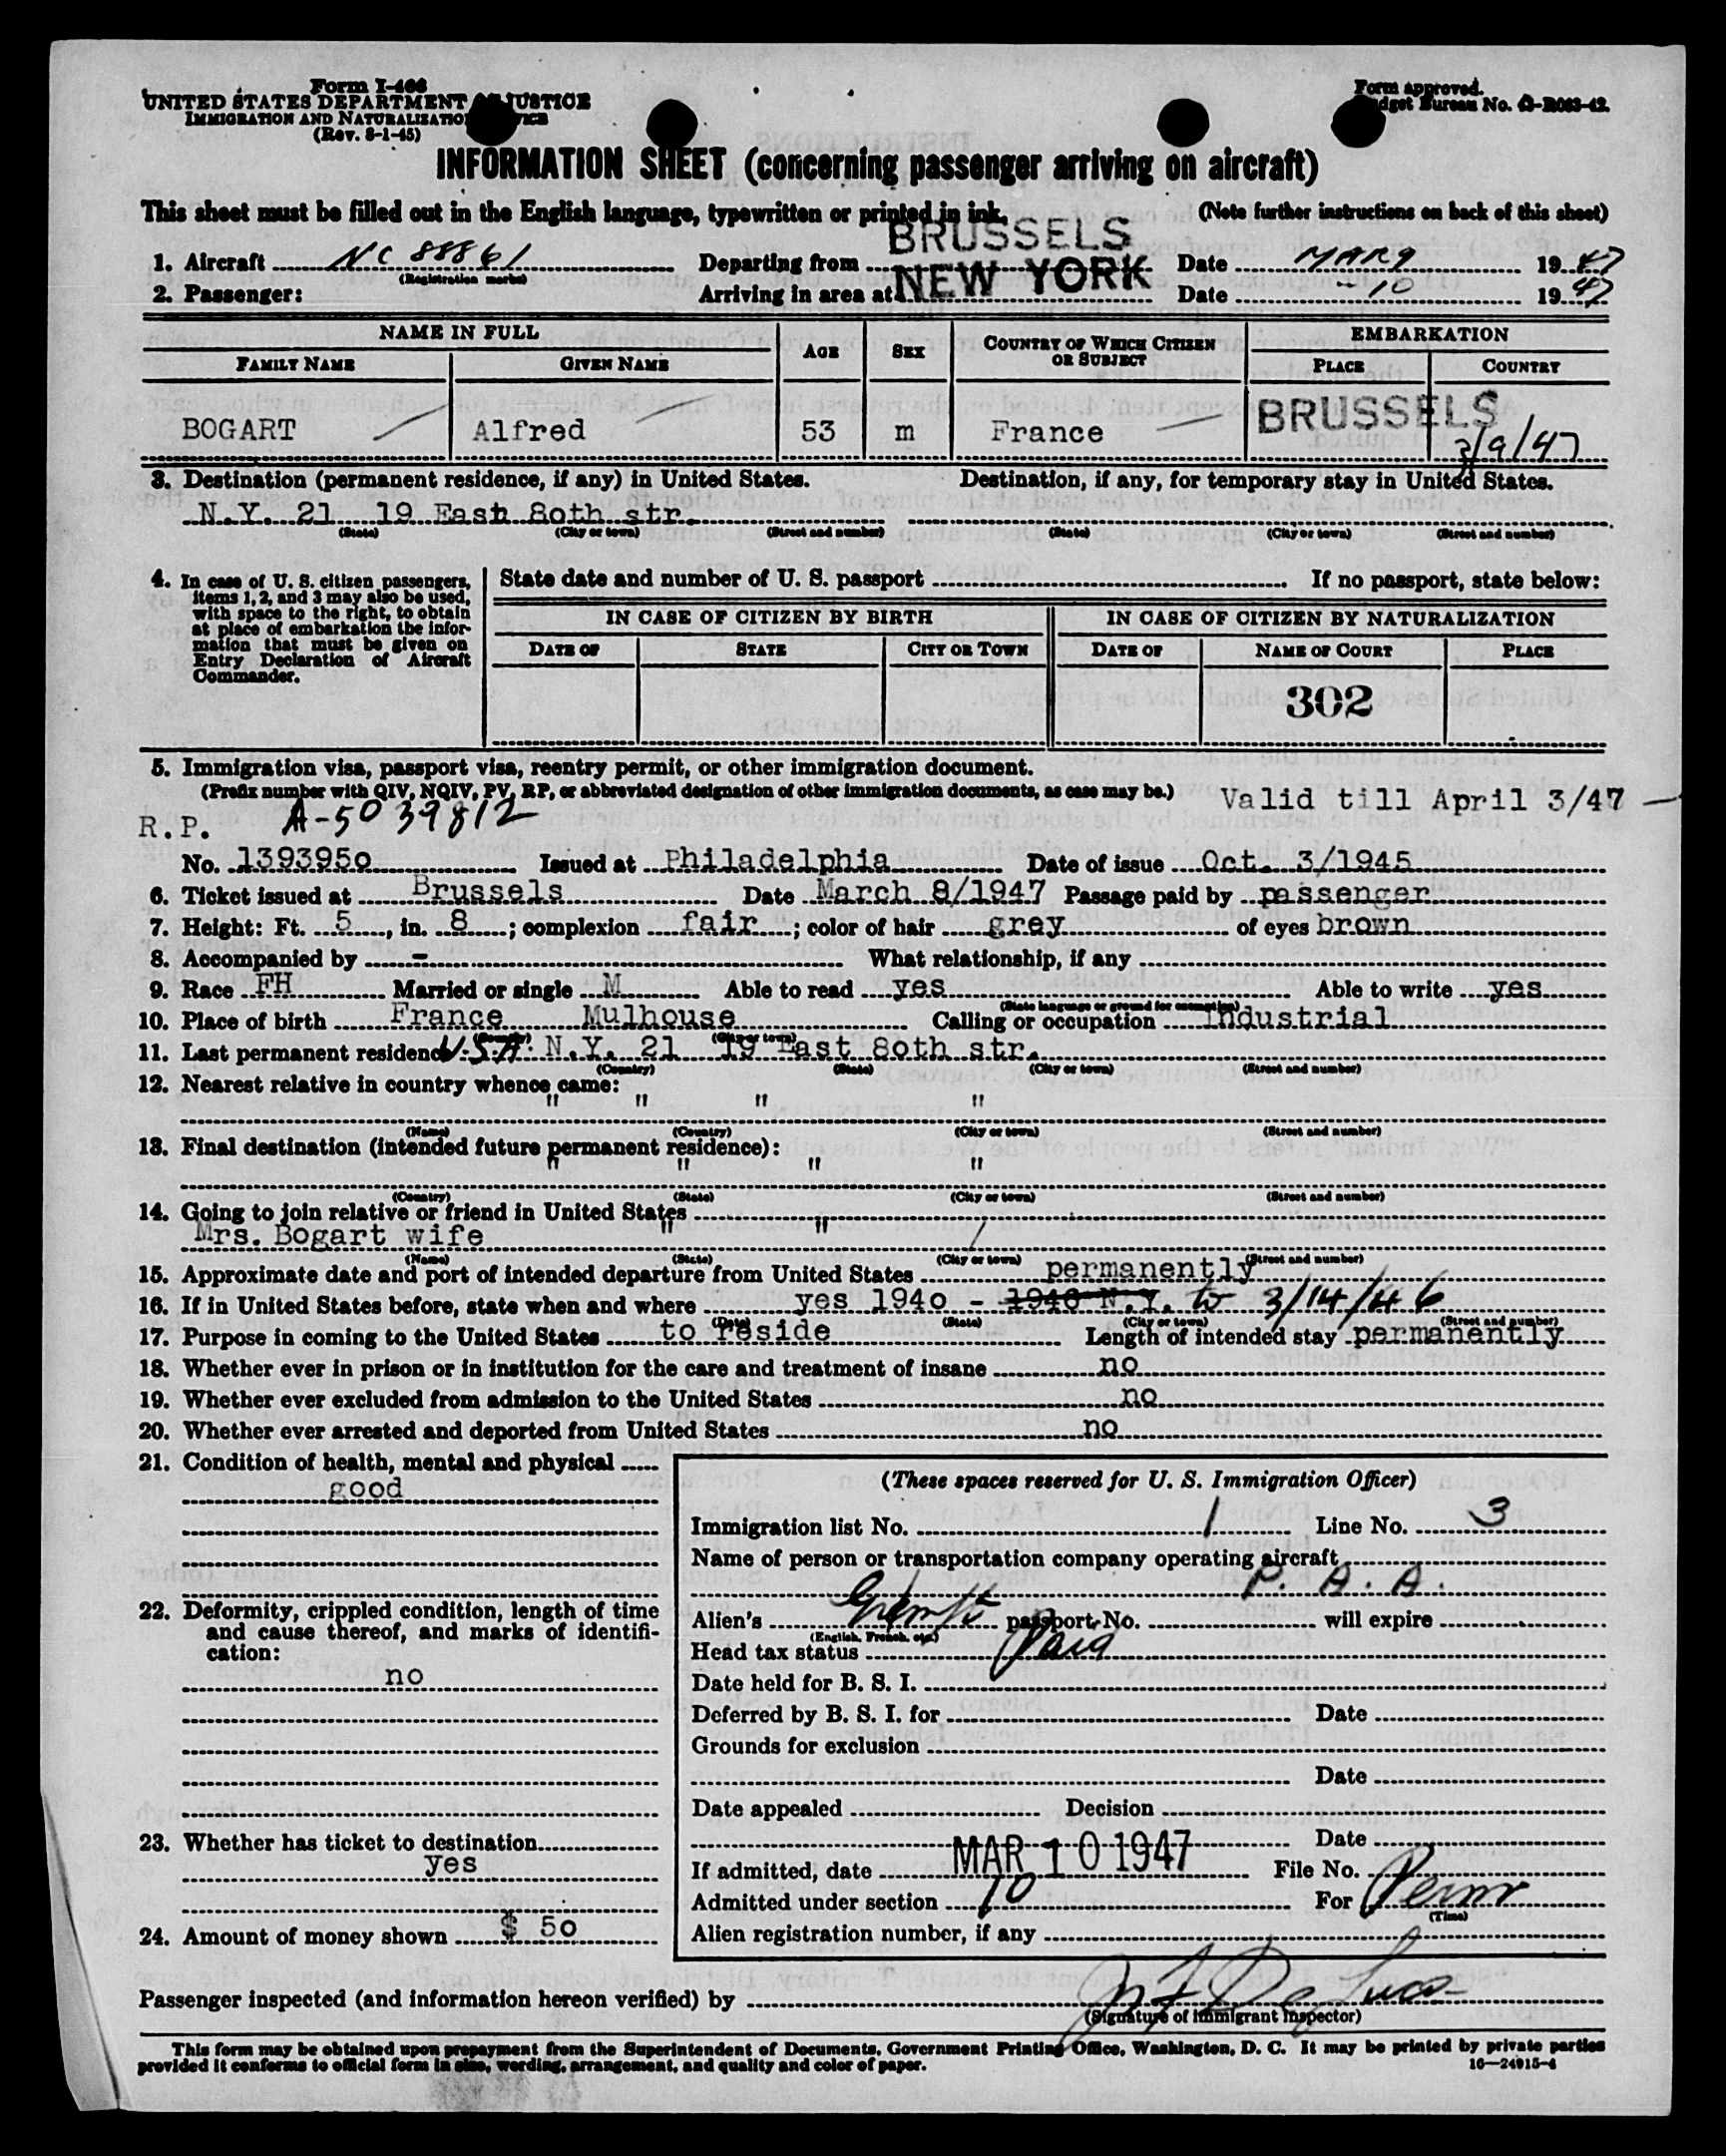 Form I-466
UNITED STATES DEPARTMENT OF JUSTICE
IMMIGRATION AND NATURALIZATION SERVICE
(Rev. 8-1-45)
Form approved.
Budget Bureau No. 43-R063-42.
INFORMATION SHEET (concerning passenger arriving on aircraft)
This sheet must be filled out in the English language, typewritten or printed in ink. (Note further instructions on back of this sheet)
1. Aircraft NC 88861 Departing from BRUSSELS Date MAR 9 1947
(Registration marks)
2. Passenger: Arriving in area at NEW YORK Date - 10 1947
NAME IN FULL AGE SEX COUNTRY OF WHICH CITIZEN OR SUBJECT EMBARKATION
FAMILY NAME GIVEN NAME PLACE COUNTRY
BOGART Alfred 53 m France BRUSSELS 3/9/47
3. Destination (permanent residence, if any) in United States. Destination, if any, for temporary stay in United States.
N.Y. 21 19 East 80th str.
(State) (City or town) (Street and number) (State) (City or town) (Street and number)
4. In case of U. S. citizen passengers, items 1, 2, and 3 may also be used, with space to the right, to obtain at place of embarkation the information that must be given on Entry Declaration of Aircraft Commander.
State date and number of U. S. passport If no passport, state below:
IN CASE OF CITIZEN BY BIRTH IN CASE OF CITIZEN BY NATURALIZATION
DATE OF STATE CITY OR TOWN DATE OF NAME OF COURT PLACE
302
5. Immigration visa, passport visa, reentry permit, or other immigration document.
(Prefix number with QIV, NQIV, PV, RP, or abbreviated designation of other immigration documents, as case may be.) Valid till April 3/47
R.P. A-5039812
No. 1393950 Issued at Philadelphia Date of issue Oct. 3/1945
6. Ticket issued at Brussels Date March 8/1947 Passage paid by passenger
7. Height: Ft. 5, in. 8; complexion fair; color of hair grey of eyes brown
8. Accompanied by - What relationship, if any
9. Race FH Married or single M Able to read yes Able to write yes
(State language or ground for exemption)
10. Place of birth France Mulhouse Calling or occupation Industrial
(Country) (City or town)
11. Last permanent residence U.S.A. N.Y. 21 19 East 80th str.
(Country) (State) (City or town) (Street and number)
12. Nearest relative in country whence came:
" " " "
(Name) (Country) (City or town) (Street and number)
13. Final destination (intended future permanent residence):
" " " "
(Country) (State) (City or town) (Street and number)
14. Going to join relative or friend in United States
Mrs. Bogart wife " " /
(Name) (State) (City or town) (Street and number)
15. Approximate date and port of intended departure from United States permanently
16. If in United States before, state when and where yes 1940 - 1946 N.Y. to 3/14/46
(Date) (State) (City or town) (Street and number)
17. Purpose in coming to the United States to reside Length of intended stay permanently
18. Whether ever in prison or in institution for the care and treatment of insane no
19. Whether ever excluded from admission to the United States no
20. Whether ever arrested and deported from United States no
21. Condition of health, mental and physical
good
22. Deformity, crippled condition, length of time and cause thereof, and marks of identification:
no
23. Whether has ticket to destination
yes
24. Amount of money shown $ 50
(These spaces reserved for U. S. Immigration Officer)
Immigration list No. 1 Line No. 3
Name of person or transportation company operating aircraft
P. A. A.
Alien's passport No. will expire
(English, French, etc.)
Head tax status Paid
Date held for B. S. I.
Deferred by B. S. I. for Date
Grounds for exclusion
Date
Date appealed Decision
Date
If admitted, date MAR 10 1947 File No.
Admitted under section 10 For Perm
(Time)
Alien registration number, if any
Passenger inspected (and information hereon verified) by
(Signature of Immigrant Inspector)
This form may be obtained upon prepayment from the Superintendent of Documents, Government Printing Office, Washington, D. C. It may be printed by private parties
provided it conforms to official form in size, wording, arrangement, and quality and color of paper. 16—24915-4